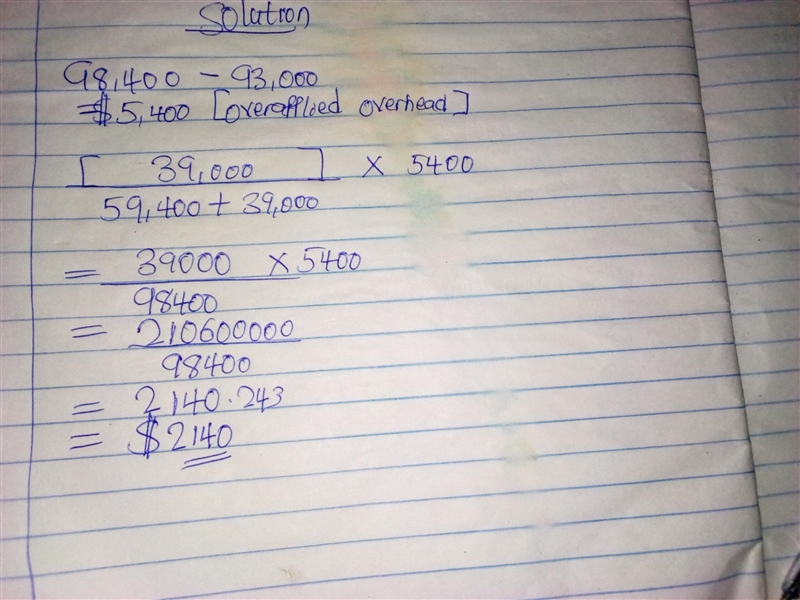 Solution
98,400 - 93,000
= $5,400 [overapplied overhead]
[ 39,000 ] × 5400
59,400 + 39,000
= 39000 × 5400
98400
= 210600000
98400
= 2140.243
= $2140